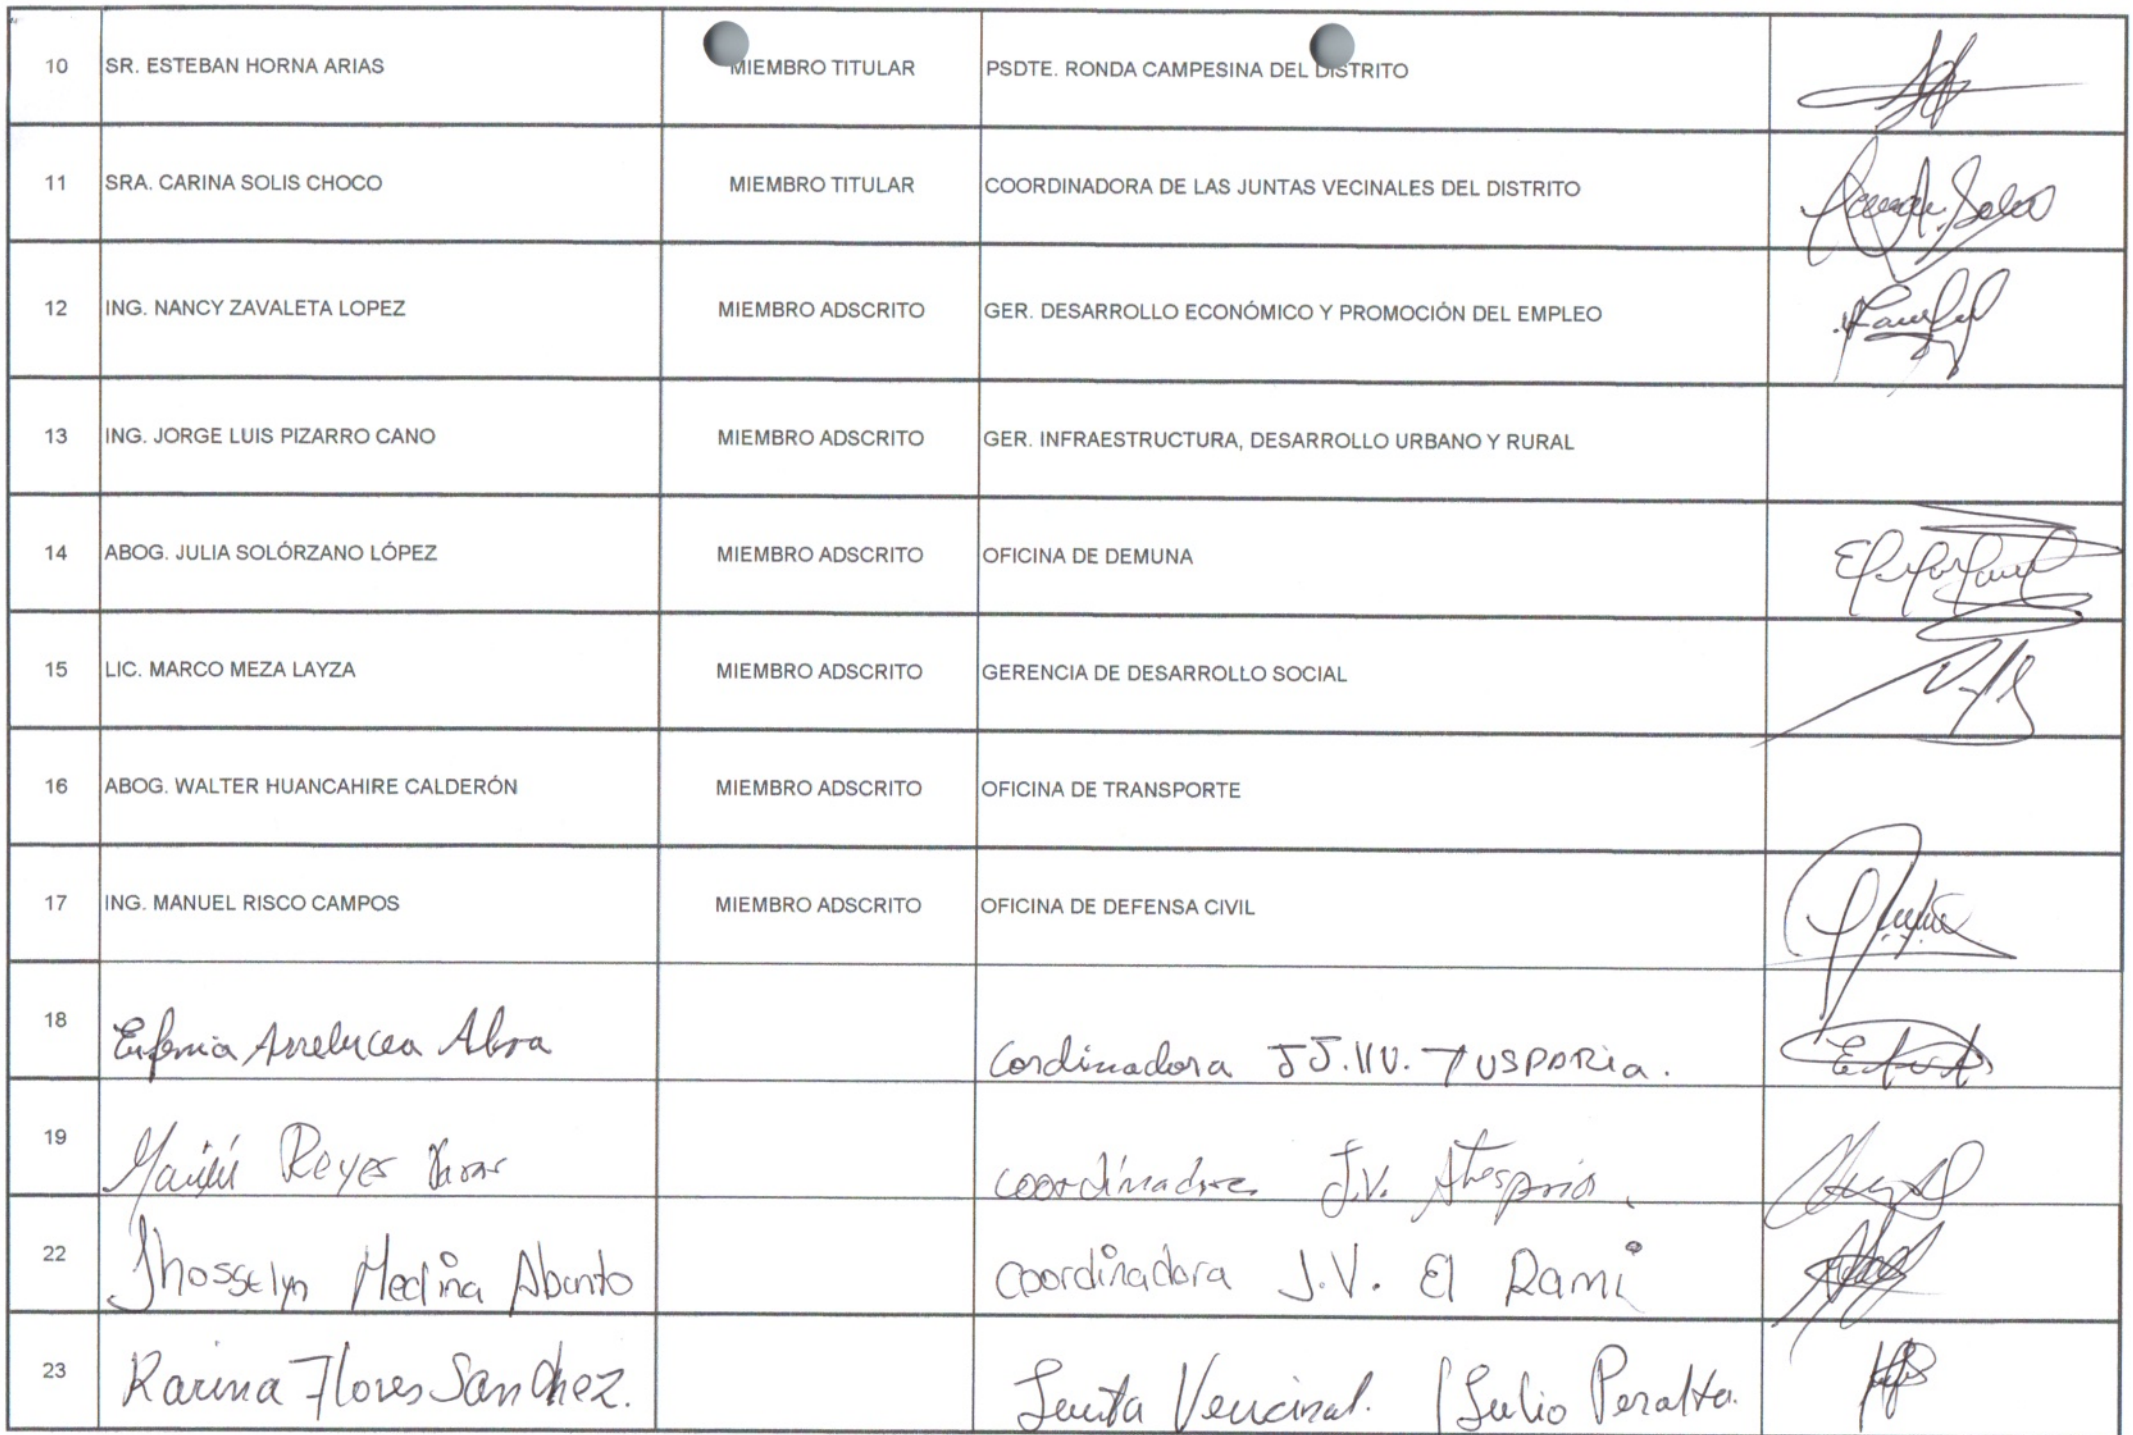 10 SR. ESTEBAN HORNA ARIAS MIEMBRO TITULAR PSDTE. RONDA CAMPESINA DEL DISTRITO
11 SRA. CARINA SOLIS CHOCO MIEMBRO TITULAR COORDINADORA DE LAS JUNTAS VECINALES DEL DISTRITO
12 ING. NANCY ZAVALETA LOPEZ MIEMBRO ADSCRITO GER. DESARROLLO ECONÓMICO Y PROMOCIÓN DEL EMPLEO
13 ING. JORGE LUIS PIZARRO CANO MIEMBRO ADSCRITO GER. INFRAESTRUCTURA, DESARROLLO URBANO Y RURAL
14 ABOG. JULIA SOLÓRZANO LÓPEZ MIEMBRO ADSCRITO OFICINA DE DEMUNA
15 LIC. MARCO MEZA LAYZA MIEMBRO ADSCRITO GERENCIA DE DESARROLLO SOCIAL
16 ABOG. WALTER HUANCAHIRE CALDERÓN MIEMBRO ADSCRITO OFICINA DE TRANSPORTE
17 ING. MANUEL RISCO CAMPOS MIEMBRO ADSCRITO OFICINA DE DEFENSA CIVIL
18 Eufemia Arrelucea Cordinadora
19 Reyes J.V.
22 Jhosselyn Medina Abanto coordinadora J.V. El Rami
23 Karina Flores Sanchez. Julio Peralta.